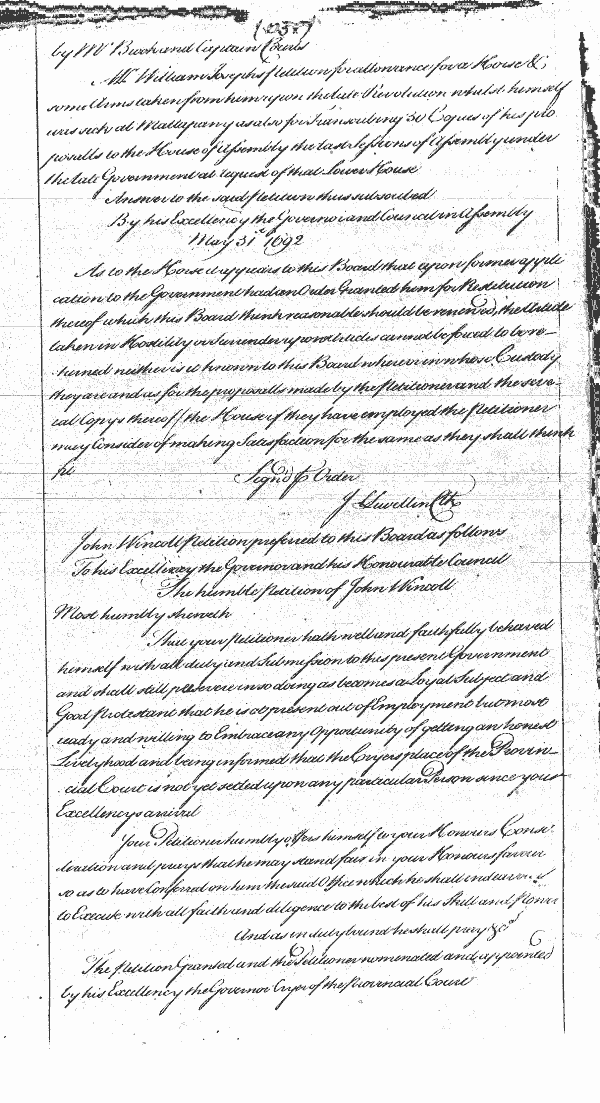 by Mr Brook and Captain Courts
Mr. William Josephs Petition for allowance for a Horse &
some Arms taken from him upon the late Revolution whilst himself
was sick at Mattapany as also for Transcribing 50 Copies of his pro
posalls to the House of Assembly the last Sessions of Assembly under
the late Government at request of that Lower House
Answer to the said Petition thus subscribed
By his Excellency the Governor and Council in Assembly
May 31st 1692
As to the Horse it appears to this Board that upon former appli
cation to the Government had an Order Granted him for Restitution
thereof which this Board think reasonable should be renewed, the
taken in Hostility or Surrender upon Articles cannot be forced to be re-
turned neither is it known to this Board where or in whose Custody
they are and as for the proposalls made by the Petitioner and the seve-
ral Copys thereof, the House if they have employed the Petitioner
may Consider of making Satisfaction for the same as they shall think
fit
Signd p Order
J Llewellin Clk
John Wincoll Petition preferred to this Board as follows
To his Excellency the Governor and his Honourable Council
The humble Petition of John Wincoll
Most humbly sheweth
That your Petitioner hath well and faithfully behaved
himself with all duty and Submission to this present Government
and shall still persevere in so doing as becomes a Loyal Subject and
Good Protestant that he is at present out of Employment but most
ready and willing to Embrace any Opportunity of getting an honest
Livelyhood and being informed that the Cryers place of the Provin-
cial Court is not yet setled upon any particular Person since your
Excellencys arrival
Your Petitioner humbly offers himself to your Honours Consi-
deration and prays that he may stand fair in your Honours favour
so as to have Conferred on him the said Office which he shall endeavour
to Execute with all faith and diligence to the best of his Skill and Power
And as in duty bound he shall pray &ca
The Petition Granted and the Petitioner nominated and appointed
by his Excellency the Governor Cryer of the Provincial Court